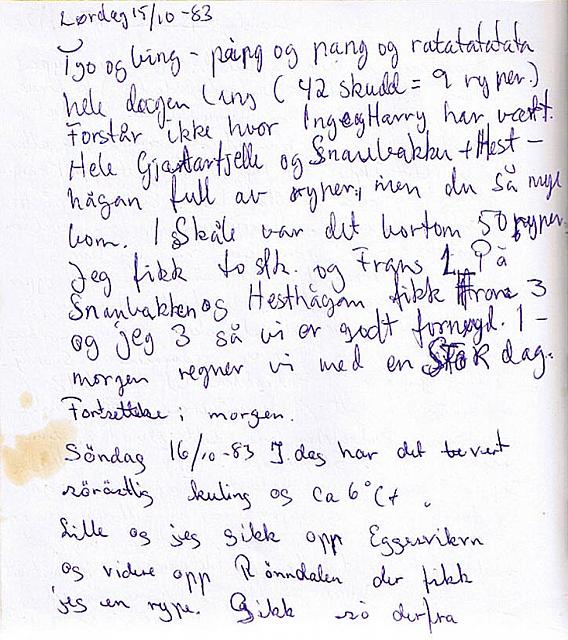 Lørdag 15/10-83
og bing - pang og pang og ratatatatata
hele dagen lang (42 skudd = 9 ryper.)
Forstår ikke hvor Inge og Harry har vært.
Hele Gjætarfjelle og Snaubakken + Hest-
hågan full av ryper, men du så mye
kom. I Skåle var det bortom 50 ryper.
Jeg fikk to stk. og Frans 1. På
Snaubakken og Hesthågan fikk Frans 3
og jeg 3 så vi er godt fornøyd. I-
morgen regner vi med en STOR dag.
Fortsettelse i morgen.
Söndag 16/10-83 I dag har det
sörästlig kuling og ca 6°C+.
Lille og jeg gikk opp Eggesvikva
og videre opp Rönndalen der fikk
jeg en rype. Gikk så derfra